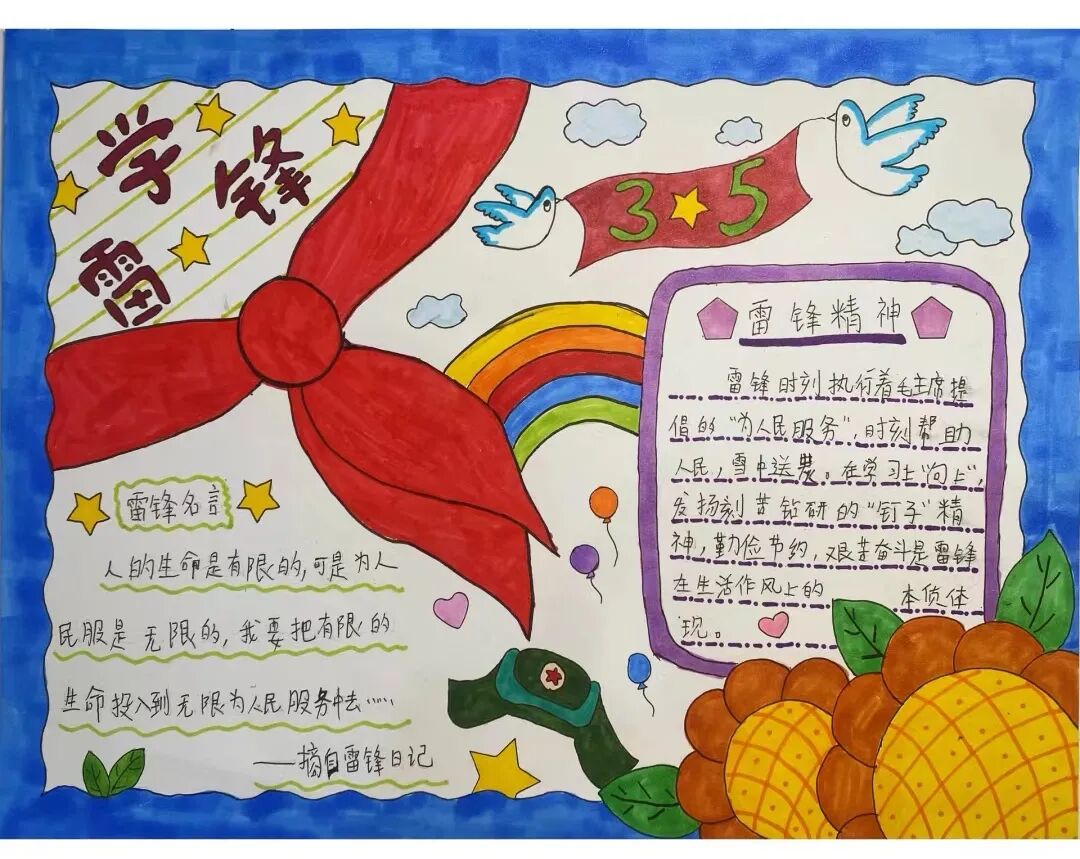 学
锋
雷
3 5
雷锋精神
雷锋时刻执行着毛主席提
倡的“为人民服务”,时刻帮助
人民,雪中送炭。在学习上“向上”,
发扬刻苦钻研的“钉子”精
神,勤俭节约,艰苦奋斗是雷锋
在生活作风上的 本质体
现。
雷锋名言
人的生命是有限的,可是为人
民服是无限的,我要把有限的
生命投入到无限为人民服务中去……
——摘自雷锋日记